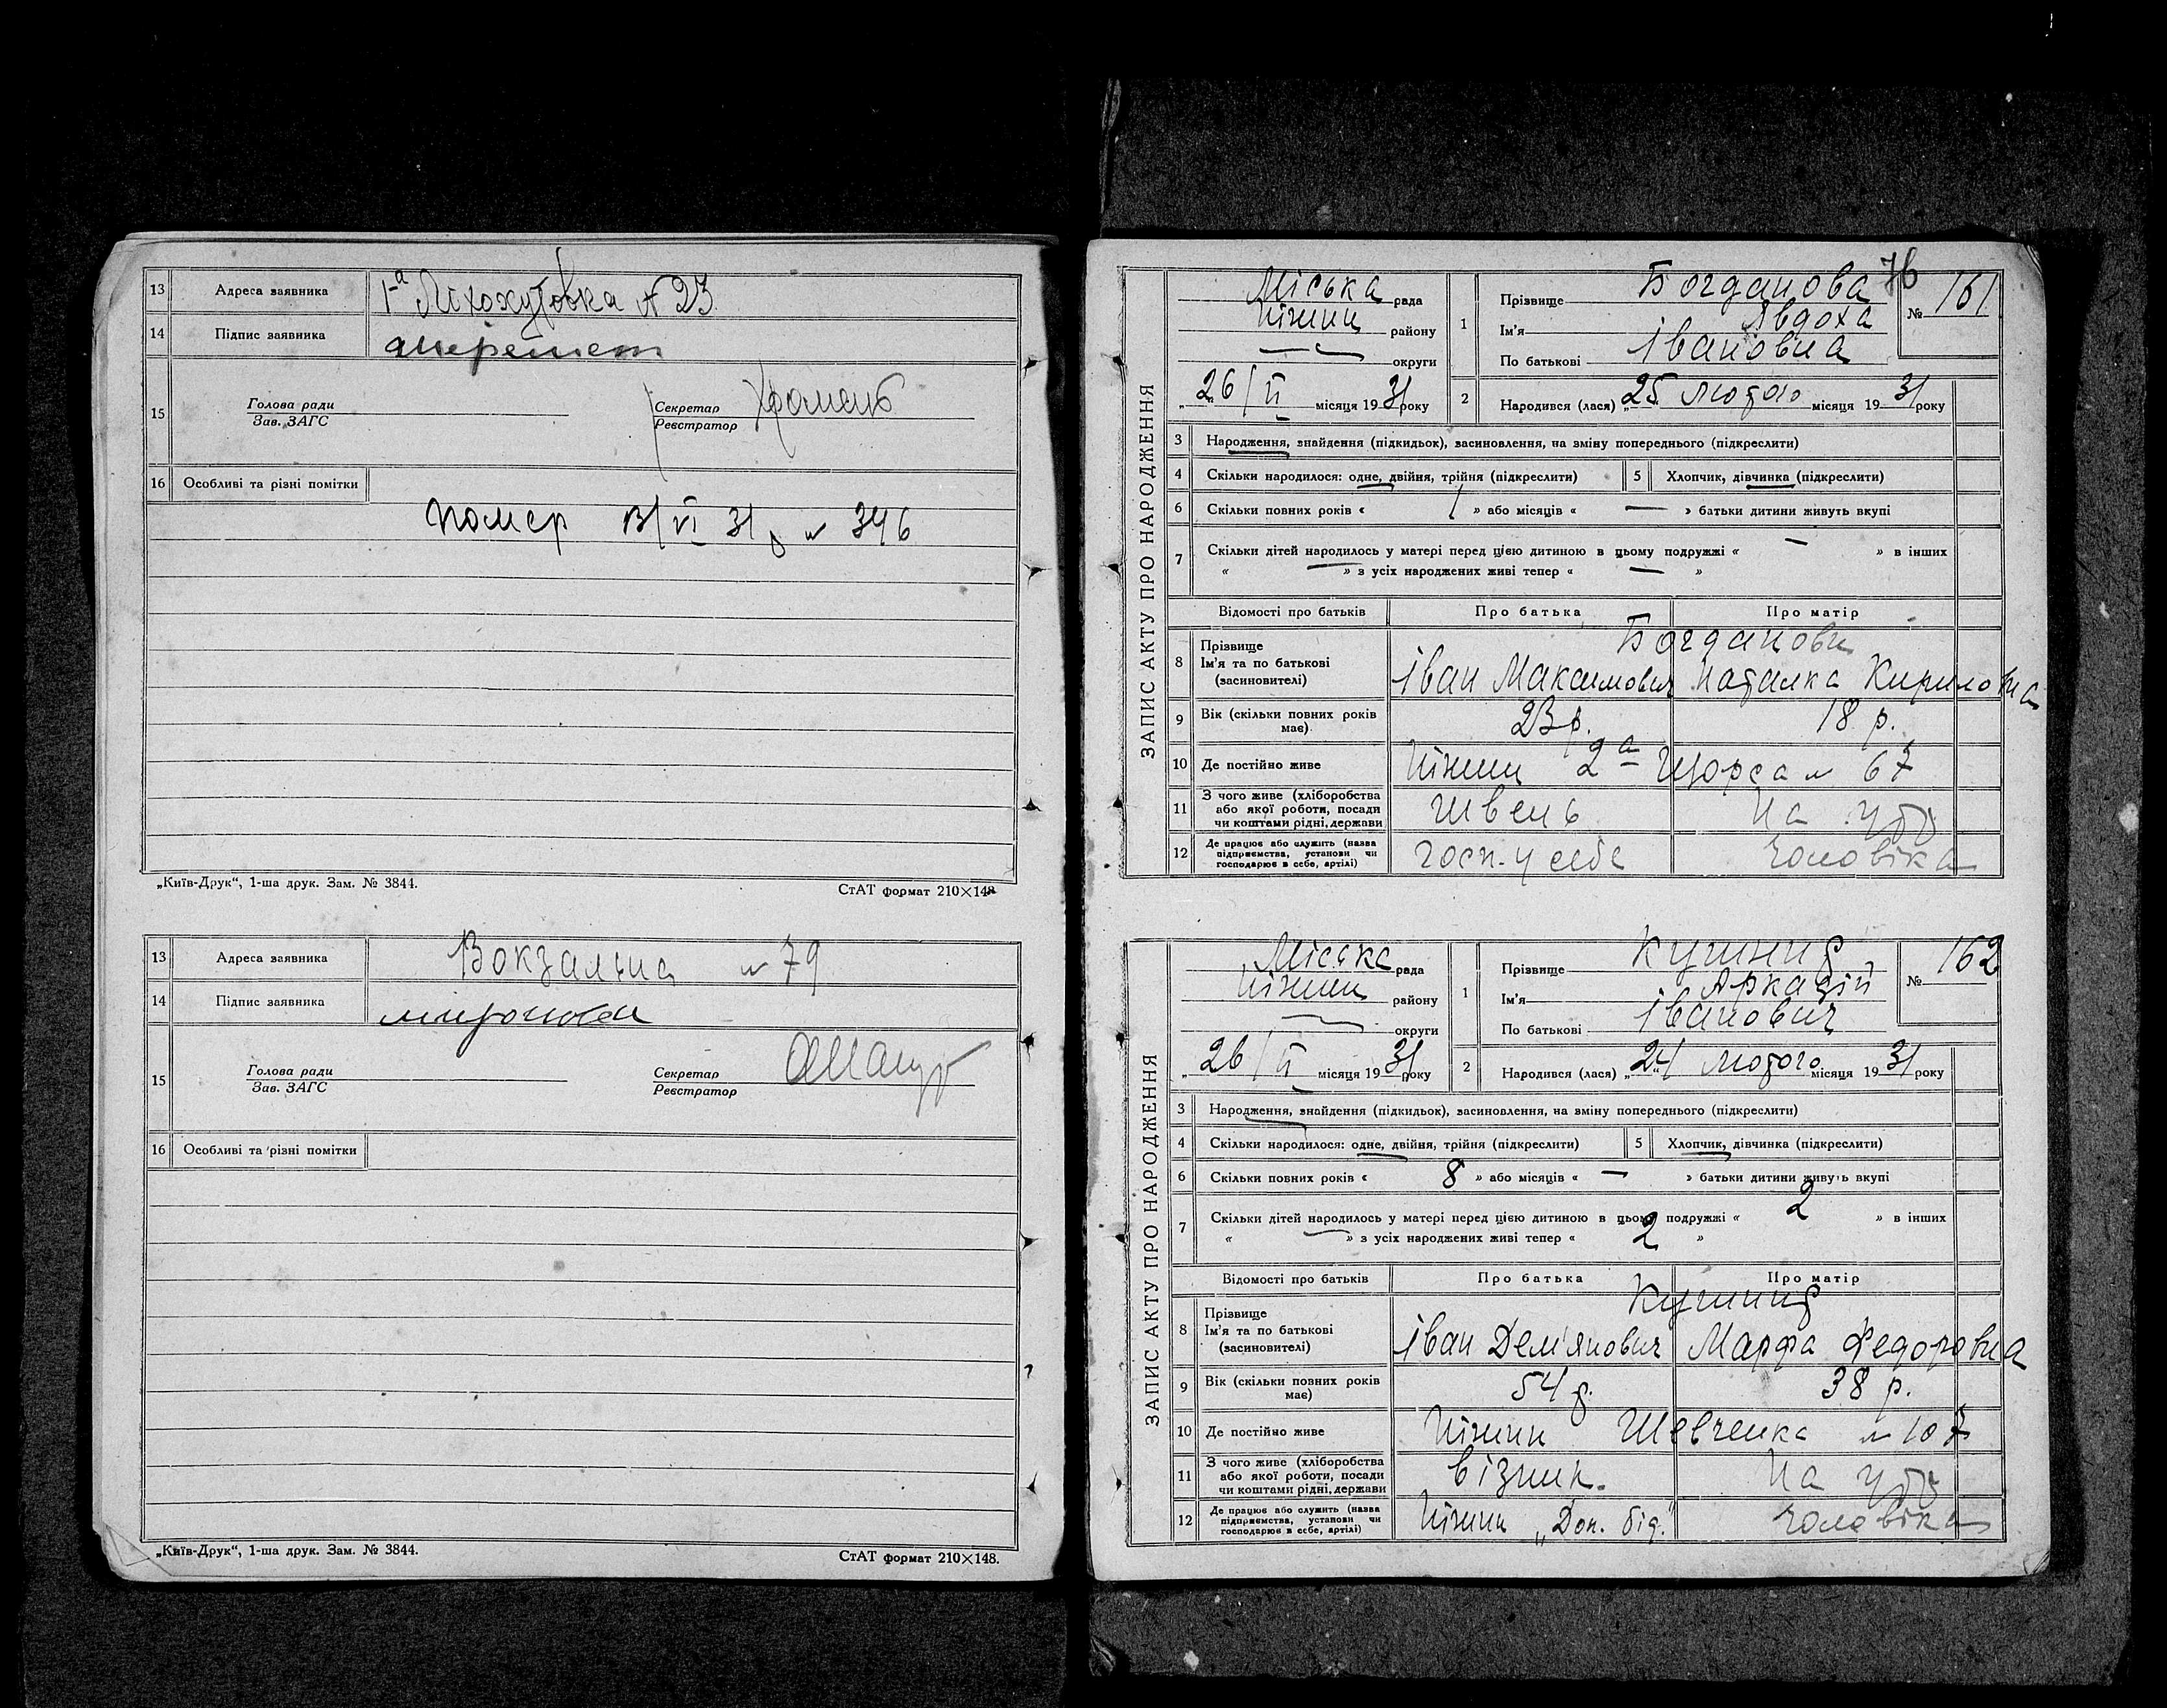 13 Адреса заявника 1-а Ліхохутовка № 23
14 Підпис заявника
15 Голова ради
Зав. ЗАГС
Секретар
Реєстратор
16 Особливі та різні помітки
Помер 13/VI 31 р № 346
„Київ-Друк“, 1-ша друк. Зам. № 3844.
СтАТ формат 210×148
13 Адреса заявника Вокзальна № 79
14 Підпис заявника
15 Голова ради
Зав. ЗАГС
Секретар
Реєстратор
16 Особливі та різні помітки
„Київ-Друк“, 1-ша друк. Зам. № 3844.
СтАТ формат 210×148.
76
ЗАПИС АКТУ ПРО НАРОДЖЕННЯ
Міська рада
Ніжин району
— округи
„26/II місяця 1931 року
1 Прізвище Богданова
Ім'я Явдоха
По батькові Івановна
№ 161
2 Народився (лася) „25 Лютого місяця 1931 року
3 Народження, знайдення (підкидьок), васиновлення, на зміну попереднього (підкреслити)
4 Скільки народилося: одне, двійня, трійня (підкреслити)
5 Хлопчик, дівчинка (підкреслити)
6 Скільки повних років « 1 » або місяців « — » батьки дитини живуть вкупі
7 Скільки дітей народилось у матері перед цією дитиною в цьому подружжі « — » в інших
« » з усіх народжених живі тепер « — »
Відомості про батьків Про батька Про матір
8 Прізвище Богданови
Ім'я та по батькові Іван Максимович Наталка Кириловна
(засиновителі)
9 Вік (скільки повних років має) 23 р. 18 р.
10 Де постійно живе Ніжин 2а Щорса № 67
11 З чого живе (хліборобства або якої роботи, посади чи коштами рідні, держави Швець На утр
12 Де працює або служить (назва підприємства, установи чи господарює в себе, артілі) госп. у себе чоловіка
ЗАПИС АКТУ ПРО НАРОДЖЕННЯ
Міська рада
Ніжин району
— округи
„26/II місяця 1931 року
1 Прізвище Кушнир
Ім'я Аркадій
По батькові Іванович
№ 162
2 Народився (лася) „24 Лютого місяця 1931 року
3 Народження, знайдення (підкидьок), васиновлення, на зміну попереднього (підкреслити)
4 Скільки народилося: одне, двійня, трійня (підкреслити)
5 Хлопчик, дівчинка (підкреслити)
6 Скільки повних років « 8 » або місяців « — » батьки дитини живуть вкупі
7 Скільки дітей народилось у матері перед цією дитиною в цьому подружжі « 2 » в інших
« » з усіх народжених живі тепер « 2 »
Відомості про батьків Про батька Про матір
8 Прізвище Кушнир
Ім'я та по батькові Іван Дем'янович Марфа Федоровна
(засиновителі)
9 Вік (скільки повних років має) 54 р. 38 р.
10 Де постійно живе Ніжин Шевченка № 107
11 З чого живе (хліборобства або якої роботи, посади чи коштами рідні, держави візник. На утр
12 Де працює або служить (назва підприємства, установи чи господарює в себе, артілі) Ніжин „Доп. бід.“ чоловіка